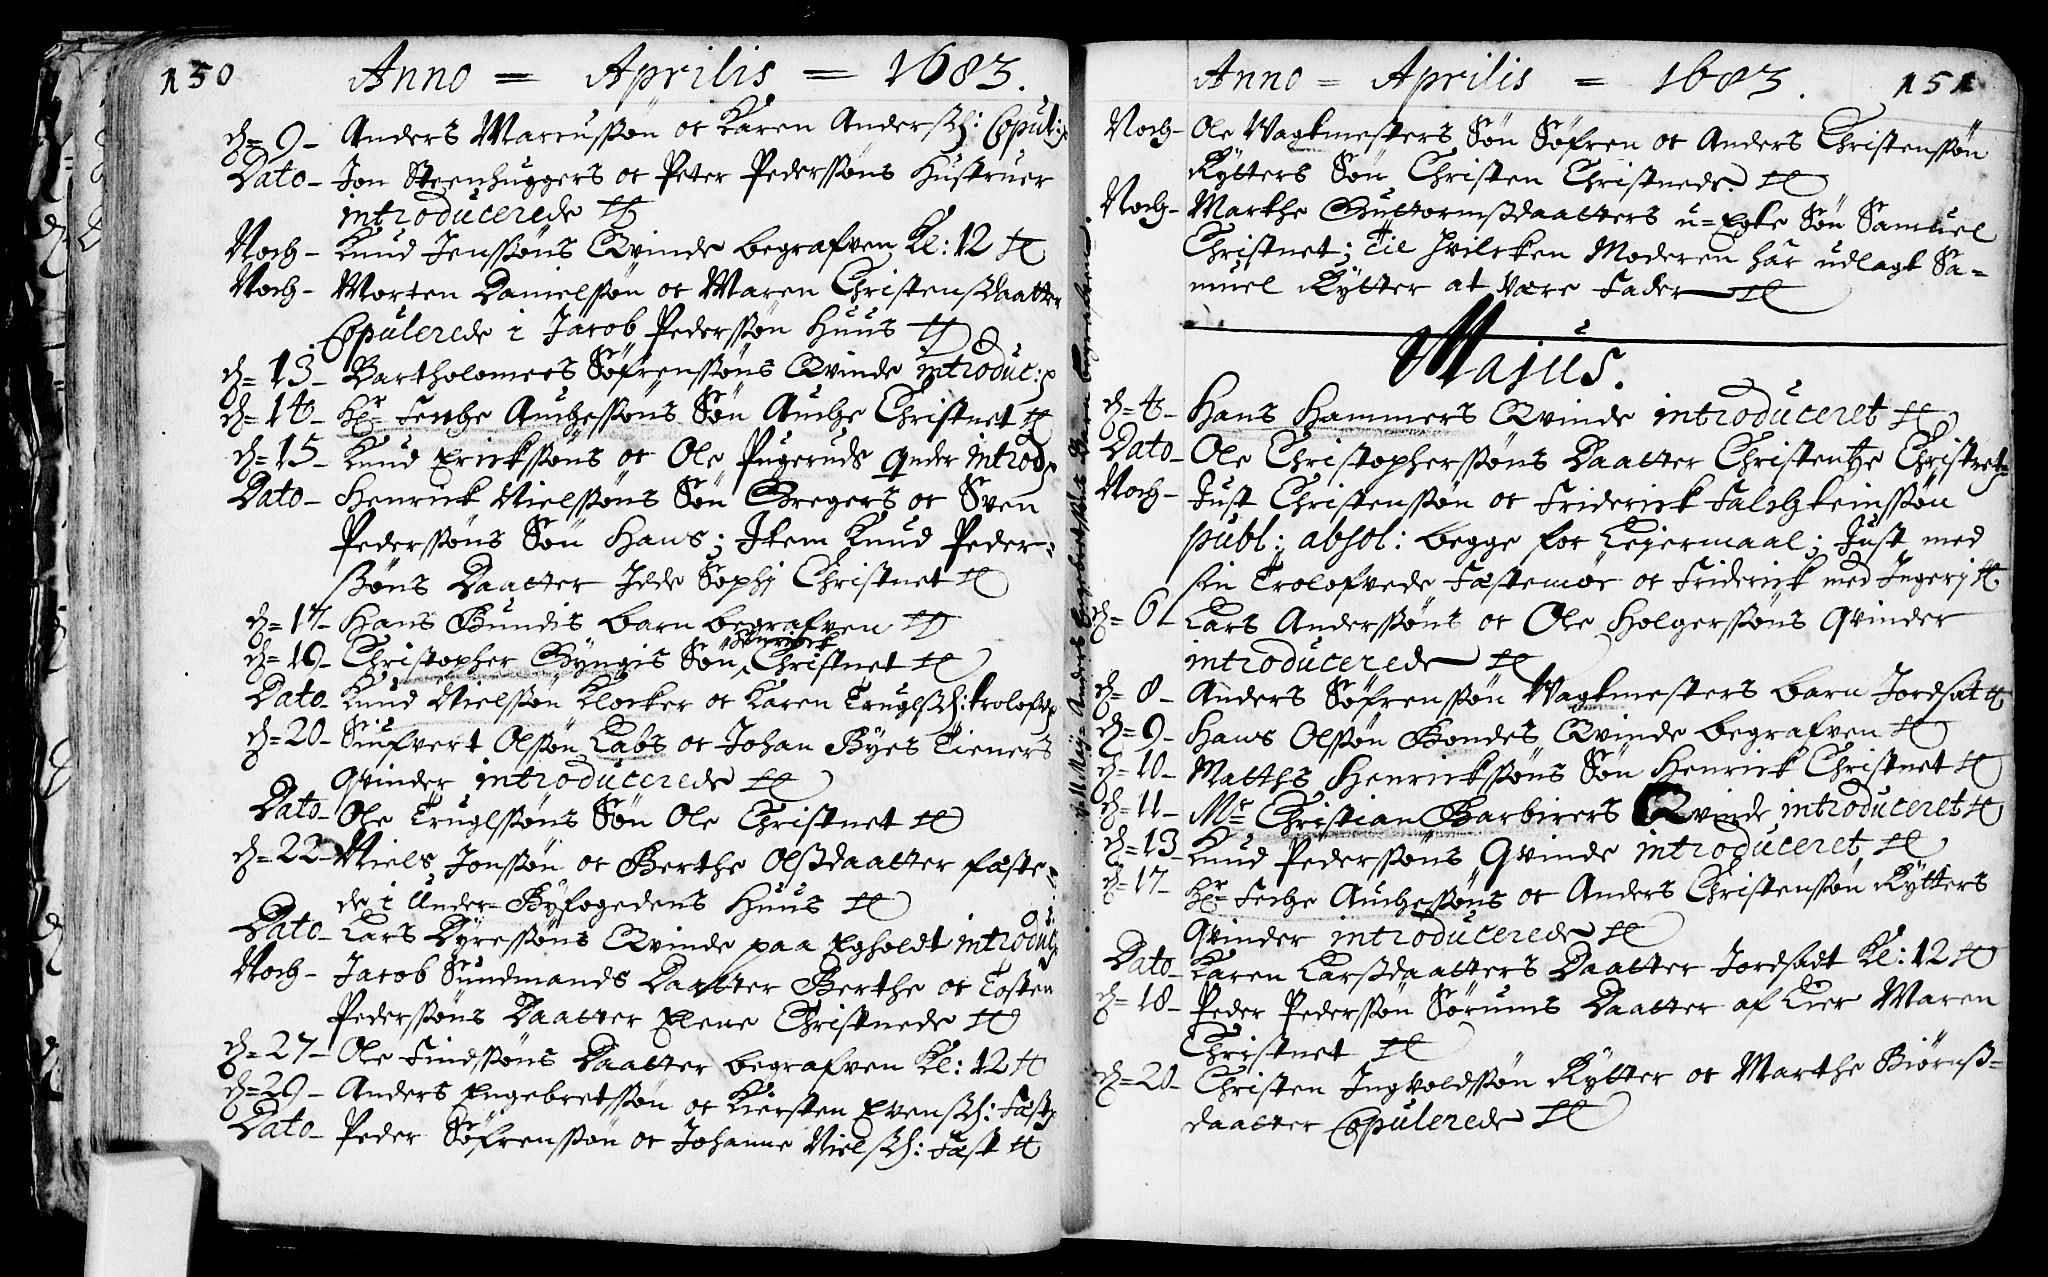 150 Anno = Aprilis = 1683.
d= 9 - Anders Marcussøn oc Karen Andersd: Copul:
Dato - Jon Steenhuggers oc Peter Pederssøns Hustruer
introducerede
Noch - Knud Jenssøns Qvinde begrafven Kl: 12
Noch - Morten Danielssøn oc Maren Christensdaatter
Copulerede i Jacob Pederssøn Huus
d= 13 - Bartholomees Søfrenssøns Qvinde introduc:
d= 14 - Hr Auchessøns Søn Auche Christnet
d= 15 - Knud Erickssøns oc Ole Pugeruds introd
Dato - Henrick Nielssøns Søn Gregers oc Sven
Pederssøns Søn Hans; Item Knud Peder-
søns Daatter Idde Sophj Christnet
d= 17 - Hans Bundis barn begrafven
d= 19 - Christopher Gyngis Søn Henrick Christnet
Dato - Knud Nielssøn Klocker oc Karen Truglsd: trolof
d= 20 - Siufvert Olssøn Labs oc Johan Byes Tieners
Qvinder introducerede
Dato - Ole Truglssøns Søn Ole Christnet
d= 22 - Niels Jonssøn oc Berthe Olsdaatter fæste-
de i Under-Byfogedens Huus
Dato - Lars Dyressøns Qvinde paa Egholdt introduc
Noch - Jacob Sundmands Daatter Berthe oc Tosten
Pederssøns Daatter Elene Christnede
d= 27 - Ole Findssøns Daatter begrafven Kl: 12
d= 29 - Anders Engebretssøn oc Kiersten Evensd: fæst
Dato - Peder Søfrenssøn oc Johanne Nielsd: fæst
Anno = Aprilis = 1683. 151
Noch - Ole Wagtmesters Søn Søfren oc Anders Christenssøn
Rytters Søn Christen Christnede
Noch - Marthe Guttormsdaatters u=Egte Søn Samuel
Christnet; Til hvilcken Moderen har udlagt Sa-
muel Rytter at være Fader
Majus.
d= 4 - Hans Hammers Qvinde introduceret
Dato - Ole Christopherssøns Daatter Christentze Christnet
Noch - Just Christenssøn oc Friderick
publ: absol: begge for Leiermaal; Just med
sin Trolofvede Fæstemøe oc Friderick med Ingerj
d= 6 - Lars Anderssøns oc Ole Holgerssøns Qvinder
introducerede
d= 8 - Anders Søfrenssøn Wagtmesters barn Jordsat
d= 9 - Hans Olssøn Bondes Qvinde begrafven
d= 10 - Matths Henrickssøns Søn Henrick Christnet
d= 11 - Mr Christian Barbirers Qvinde introduceret
d= 13 - Knud Pederssøns Qvinde introduceret
d= 17 - Hr Auchessøns oc Anders Christenssøn Rytters
Qvinder introducerede
Dato - Karen Larsdaatters Daatter Jordsadt Kl: 12
d= 18 - Peder Pederssøn Sørums Daatter af Lier Maren
Christnet
d= 20 - Christen Ingvoldssøn Rytter oc Marthe Biørns-
daatter Copulerede
Anders Engebretssøns Barn begrafven